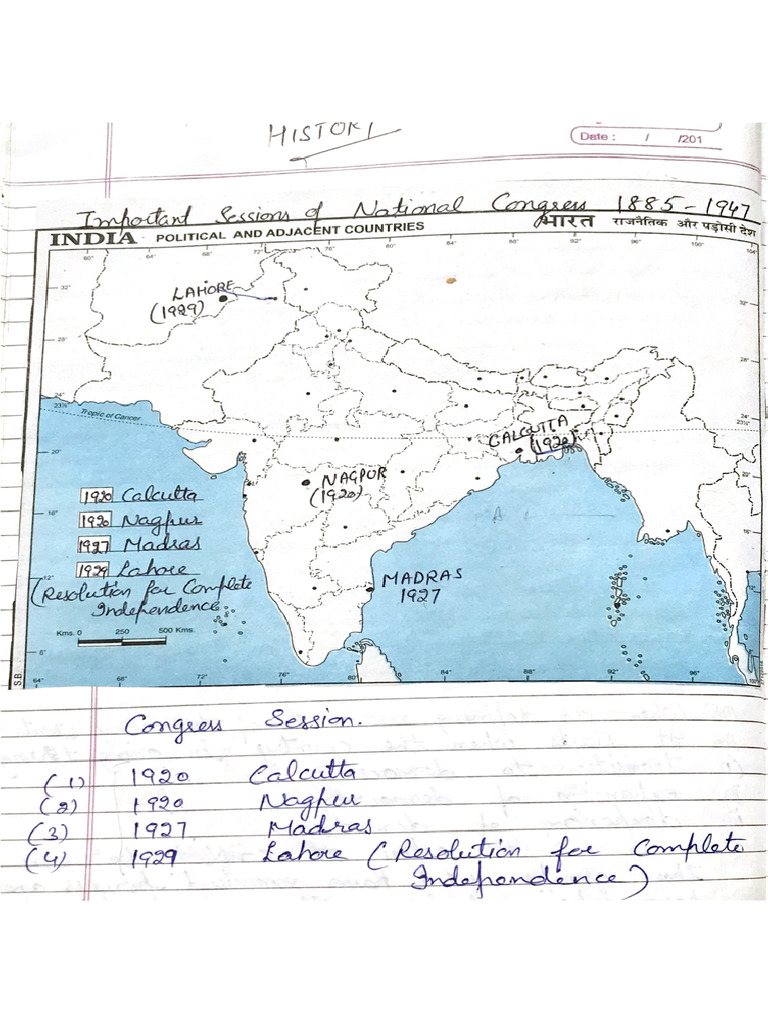 HISTORY
Date : / /201
Important Sessions of National Congress 1885-1947
INDIA POLITICAL AND ADJACENT COUNTRIES भारत राजनैतिक और पड़ोसी देश
60° 64° 68° 80° 84° 88° 92° 96°
32° 32°
LAHORE
(1929)
28° 28°
24° 24°
23½° 23½°
Tropic of Cancer
CALCUTTA
(1920)
20° 20°
NAGPUR
(1920)
1920 Calcutta
16°
1920 Nagpur
1927 Madras
1929 Lahore
12° 12°
(Resolution for Complete
Independence
MADRAS
1927
Kms. 0 250 500 Kms.
8°
S.B.
64° 68° 72° 76° 80° 84° 88° 92° 96° 100°
Congress Session.
(1) 1920 Calcutta
(2) 1920 Nagpur
(3) 1927 Madras
(4) 1929 Lahore (Resolution for Complete
Independence)